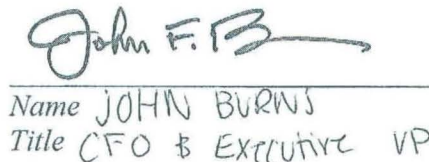 John F. B
Name JOHN BURNS
Title CFO & Executive VP